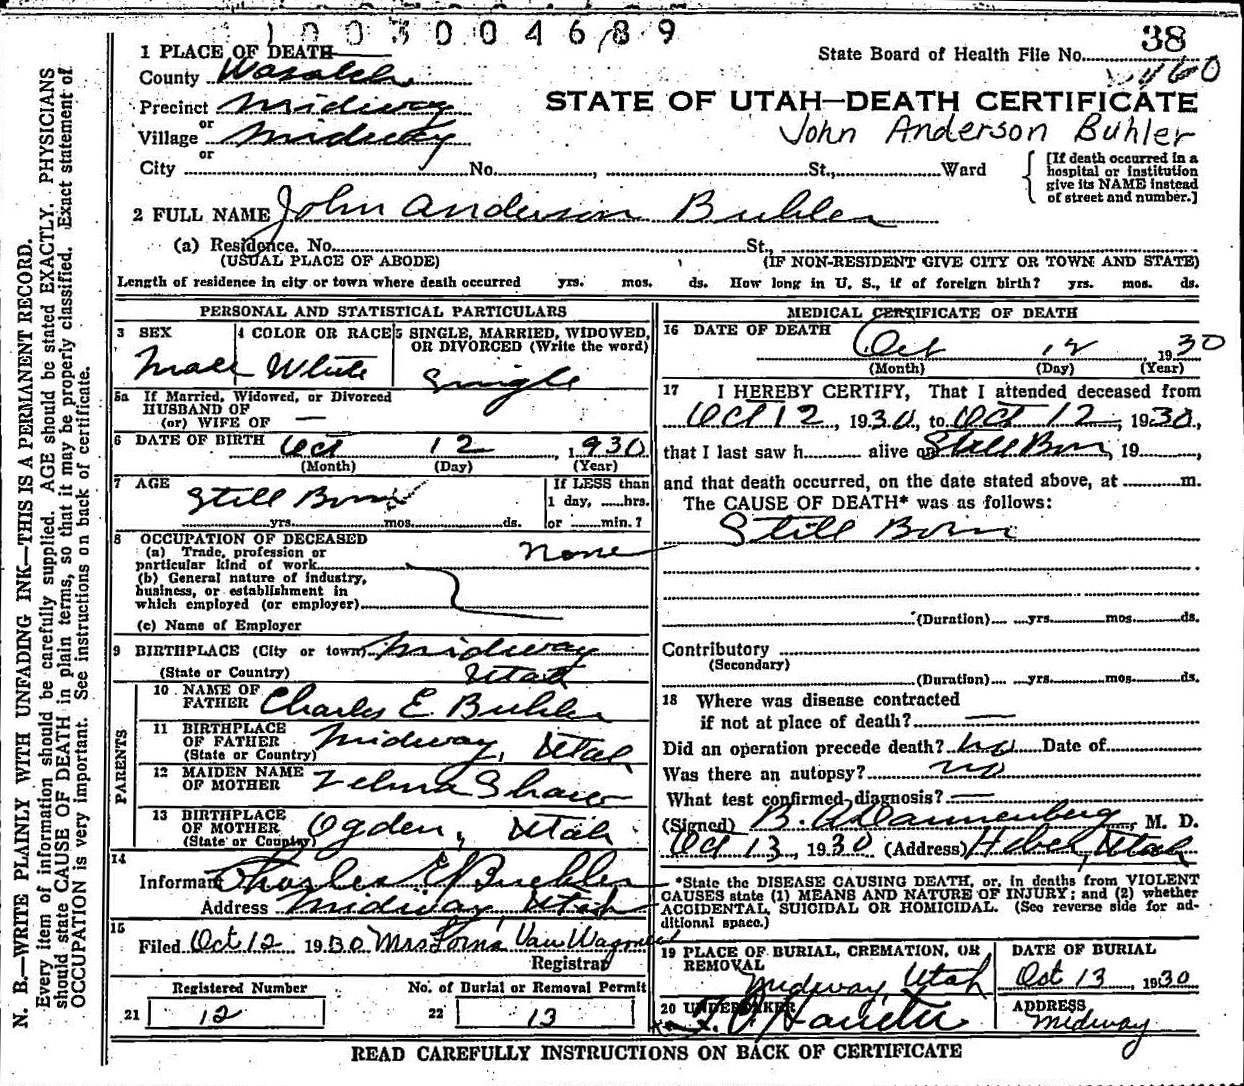 1003004689
38
State Board of Health File No.
460
1 PLACE OF DEATH
County Wasatch
Precinct Midway
or
Village Midway
or
City No. St., Ward
STATE OF UTAH—DEATH CERTIFICATE
John Anderson Buhler
[If death occurred in a
hospital or institution
give its NAME instead
of street and number.]
2 FULL NAME John Anderson Buhler
(a) Residence. No. St.,
(USUAL PLACE OF ABODE) (IF NON-RESIDENT GIVE CITY OR TOWN AND STATE)
Length of residence in city or town where death occurred yrs. mos. ds. How long in U. S., if of foreign birth? yrs. mos. ds.
PERSONAL AND STATISTICAL PARTICULARS
3 SEX
Male
4 COLOR OR RACE
White
5 SINGLE, MARRIED, WIDOWED,
OR DIVORCED (Write the word)
Single
5a If Married, Widowed, or Divorced
HUSBAND OF
(or) WIFE OF —
6 DATE OF BIRTH Oct 12, 1930
(Month) (Day) (Year)
7 AGE
Still Born
yrs. mos. ds.
If LESS than
1 day, hrs.
or min.?
8 OCCUPATION OF DECEASED
(a) Trade, profession or
particular kind of work none
(b) General nature of industry,
business, or establishment in
which employed (or employer)
(c) Name of Employer
9 BIRTHPLACE (City or town) Midway
(State or Country) Utah
PARENTS
10 NAME OF
FATHER Charles E. Buhler
11 BIRTHPLACE
OF FATHER Midway, Utah
(State or Country)
12 MAIDEN NAME
OF MOTHER Velma Shaw
13 BIRTHPLACE
OF MOTHER Ogden, Utah
(State or Country)
14
Informant Charles E Buehler
Address Midway, Utah
15
Filed Oct 12 1930 Mrs Lorna Van Wagoner
Registrar
Registered Number
21 12
No. of Burial or Removal Permit
22 13
MEDICAL CERTIFICATE OF DEATH
16 DATE OF DEATH
Oct 12, 1930
(Month) (Day) (Year)
17 I HEREBY CERTIFY, That I attended deceased from
Oct 12, 1930, to Oct 12, 1930,
that I last saw h alive on Still Born, 19 ,
and that death occurred, on the date stated above, at m.
The CAUSE OF DEATH* was as follows:
Still Born
(Duration) yrs. mos. ds.
Contributory
(Secondary)
(Duration) yrs. mos. ds.
18 Where was disease contracted
if not at place of death? —
Did an operation precede death? no Date of
Was there an autopsy? no
What test confirmed diagnosis? —
(Signed) Dannenberg, M. D.
Oct 13, 1930 (Address) Heber, Utah
*State the DISEASE CAUSING DEATH, or, in deaths from VIOLENT
CAUSES state (1) MEANS AND NATURE OF INJURY; and (2) whether
ACCIDENTAL, SUICIDAL OR HOMICIDAL. (See reverse side for ad-
ditional space.)
19 PLACE OF BURIAL, CREMATION, OR
REMOVAL
Midway, Utah
DATE OF BURIAL
Oct 13, 1930
20 UNDERTAKER
ADDRESS
Midway
READ CAREFULLY INSTRUCTIONS ON BACK OF CERTIFICATE
N. B.—WRITE PLAINLY WITH UNFADING INK—THIS IS A PERMANENT RECORD.
Every item of information should be carefully supplied. AGE should be stated EXACTLY. PHYSICIANS
should state CAUSE OF DEATH in plain terms, so that it may be properly classified. Exact statement of
OCCUPATION is very important. See instructions on back of certificate.